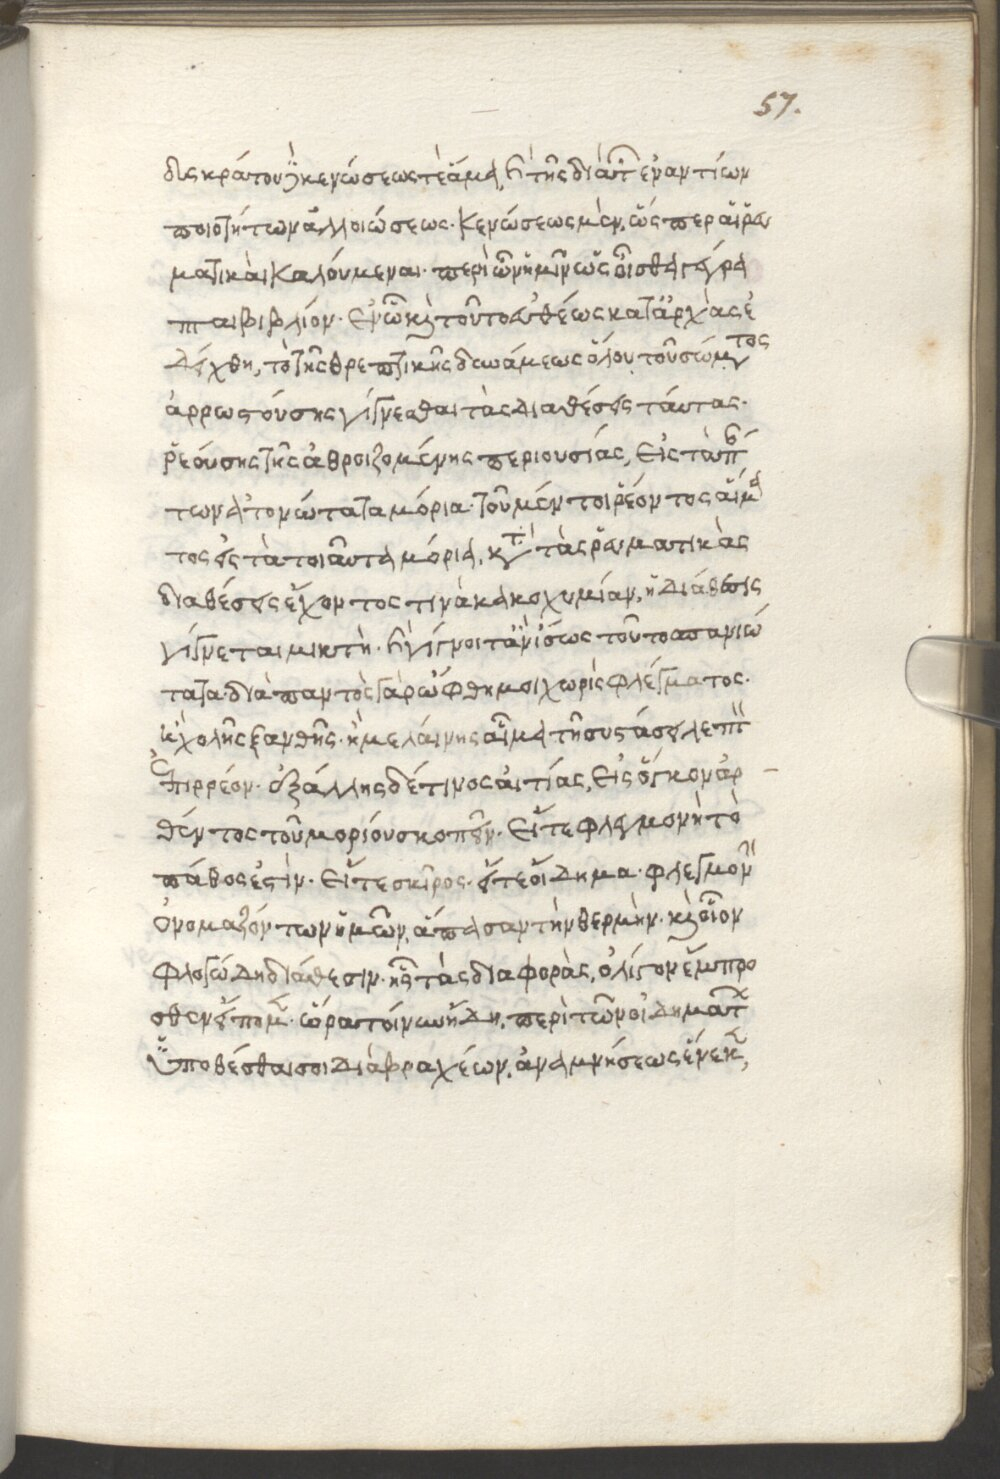 57.
δυσκράτου κενώσεως τὲ ἅμα, καὶ τῆς διὰ τῶν ἐναντίων
ποιοτήτων ἀλλοιώσεως. κενώσεως μὲν, ὥσπερ αἱ ῥευ
ματικαὶ καλούμεναι. περὶ ὧν ἡμῖν ὡς οἶσθα γέγρα
πται βιβλίον. Ἐν ᾧ καὶ τοῦτο εὐθέως κατ' ἀρχὰς ἐ
δείχθη, τὸ τῆς θρεπτικῆς δυνάμεως ὅλου τοῦ σώματος
ἀρρωστούσης γίγνεσθαι τὰς διαθέσεις ταύτας.
ῥεούσης τῆς ἀθροιζομένης περιουσίας, εἰς τὰ
των ἀτονώτατα μόρια. τοῦ μέν τοι ῥέοντος αἵμα
τος εἰς τὰ τοιαῦτα μόρια, κατὰ τὰς ῥευματικὰς
διαθέσεις ἔχοντός τινα κακοχυμίαν, ἡ διάθεσις
γίγνεται μικτή. καὶ γίγνοιτ' ἂν ἴσως τοῦτο σπανιώ
τατα. διὰ παντὸς γὰρ ὤφθη μοι χωρὶς φλέγματος.
καὶ χολῆς ξανθῆς. ἢ μελαίνης αἷμα τῇ συστάσει λεπτὸν
ἐπιρρέον. ἐξ ἄλλης δέ τινος αἰτίας, εἰς ὄγκον ἀρ
θέντος τοῦ μορίου σκοπεῖν. εἴτε φλεγμονὴ τὸ
πάθος ἐστίν. εἴτε σκίρος. εἴτε οἴδημα. φλεγμονὴν
ὀνομαζόντων ἡμῶν, ἅπασαν τὴν θερμὴν. καὶ οἷον
φλογώδη διάθεσιν. ἧς τὰς διαφορὰς, ὀλίγον ἔμπρο
σθεν εἴπομεν. ὥρα τοίνυν ἤδη, περὶ τῶν οἰδημάτων
ὑποθέσθαι σοι διὰ βραχέων, ἀναμνήσεως ἕνεκα,